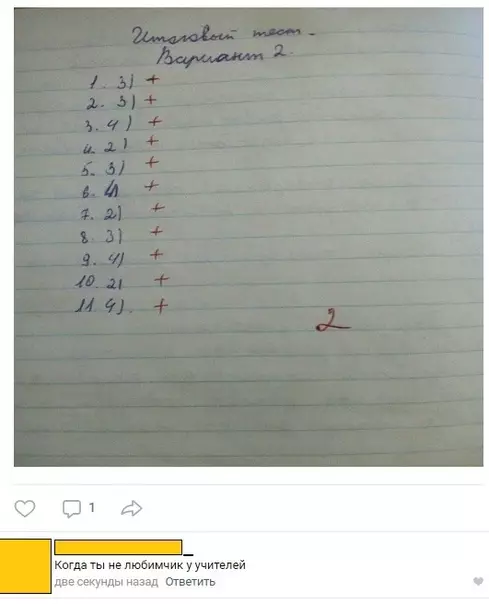 Итоговый тест.
Вариант 2.
1. 3) +
2. 3) +
3. 4) +
4. 2) +
5. 3) +
6. 4) +
7. 2) +
8. 3) +
9. 4) +
10. 2) +
11. 4). +
2
1
Когда ты не любимчик у учителей
две секунды назад Ответить